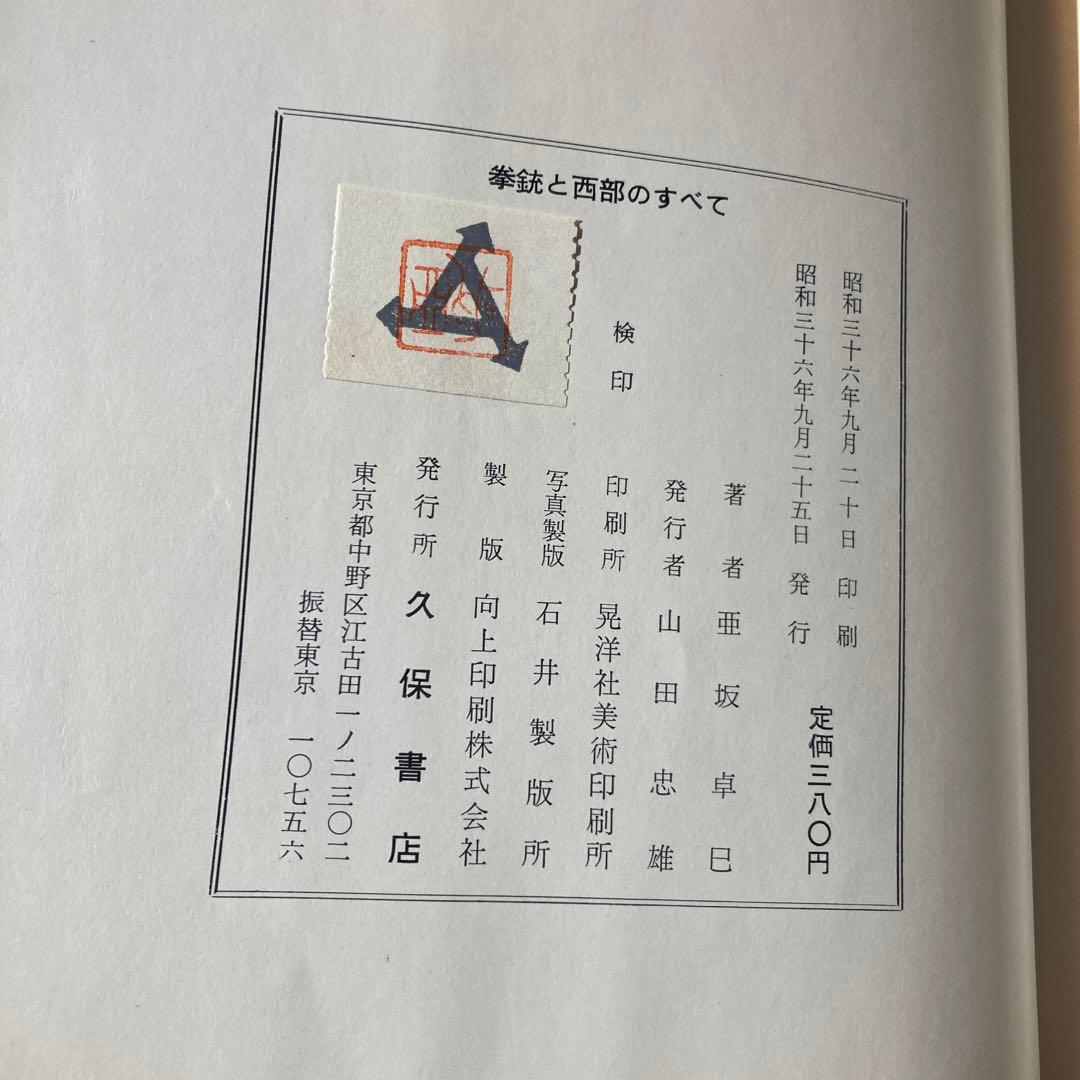 拳銃と西部のすべて
昭和三十六年九月二十日 印刷
昭和三十六年九月二十五日 発行
定価三八〇円
検印
著者 亜坂卓巳
発行者 山田忠雄
印刷所 晃洋社美術印刷所
写真製版 石井製版所
製版 向上印刷株式会社
発行所 久保書店
東京都中野区江古田一ノ二三〇二
振替東京 一〇七五六